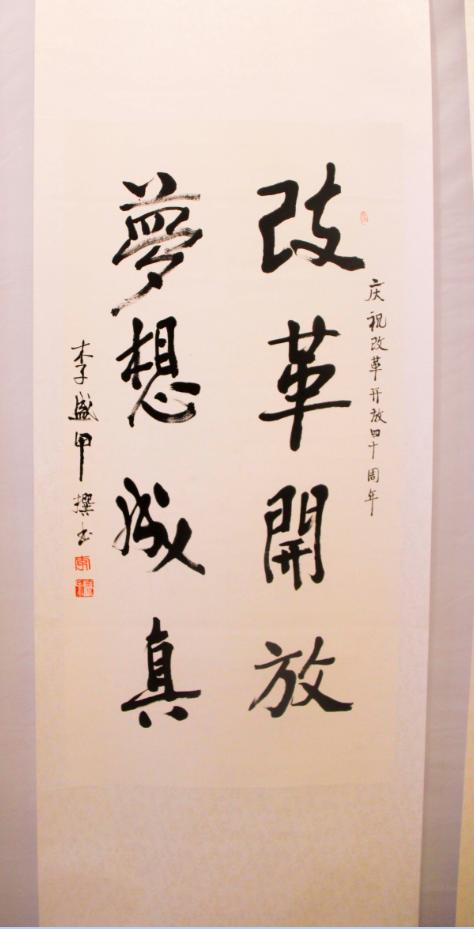 庆祝改革开放四十周年
改革開放
夢想成真
李盛甲撰书